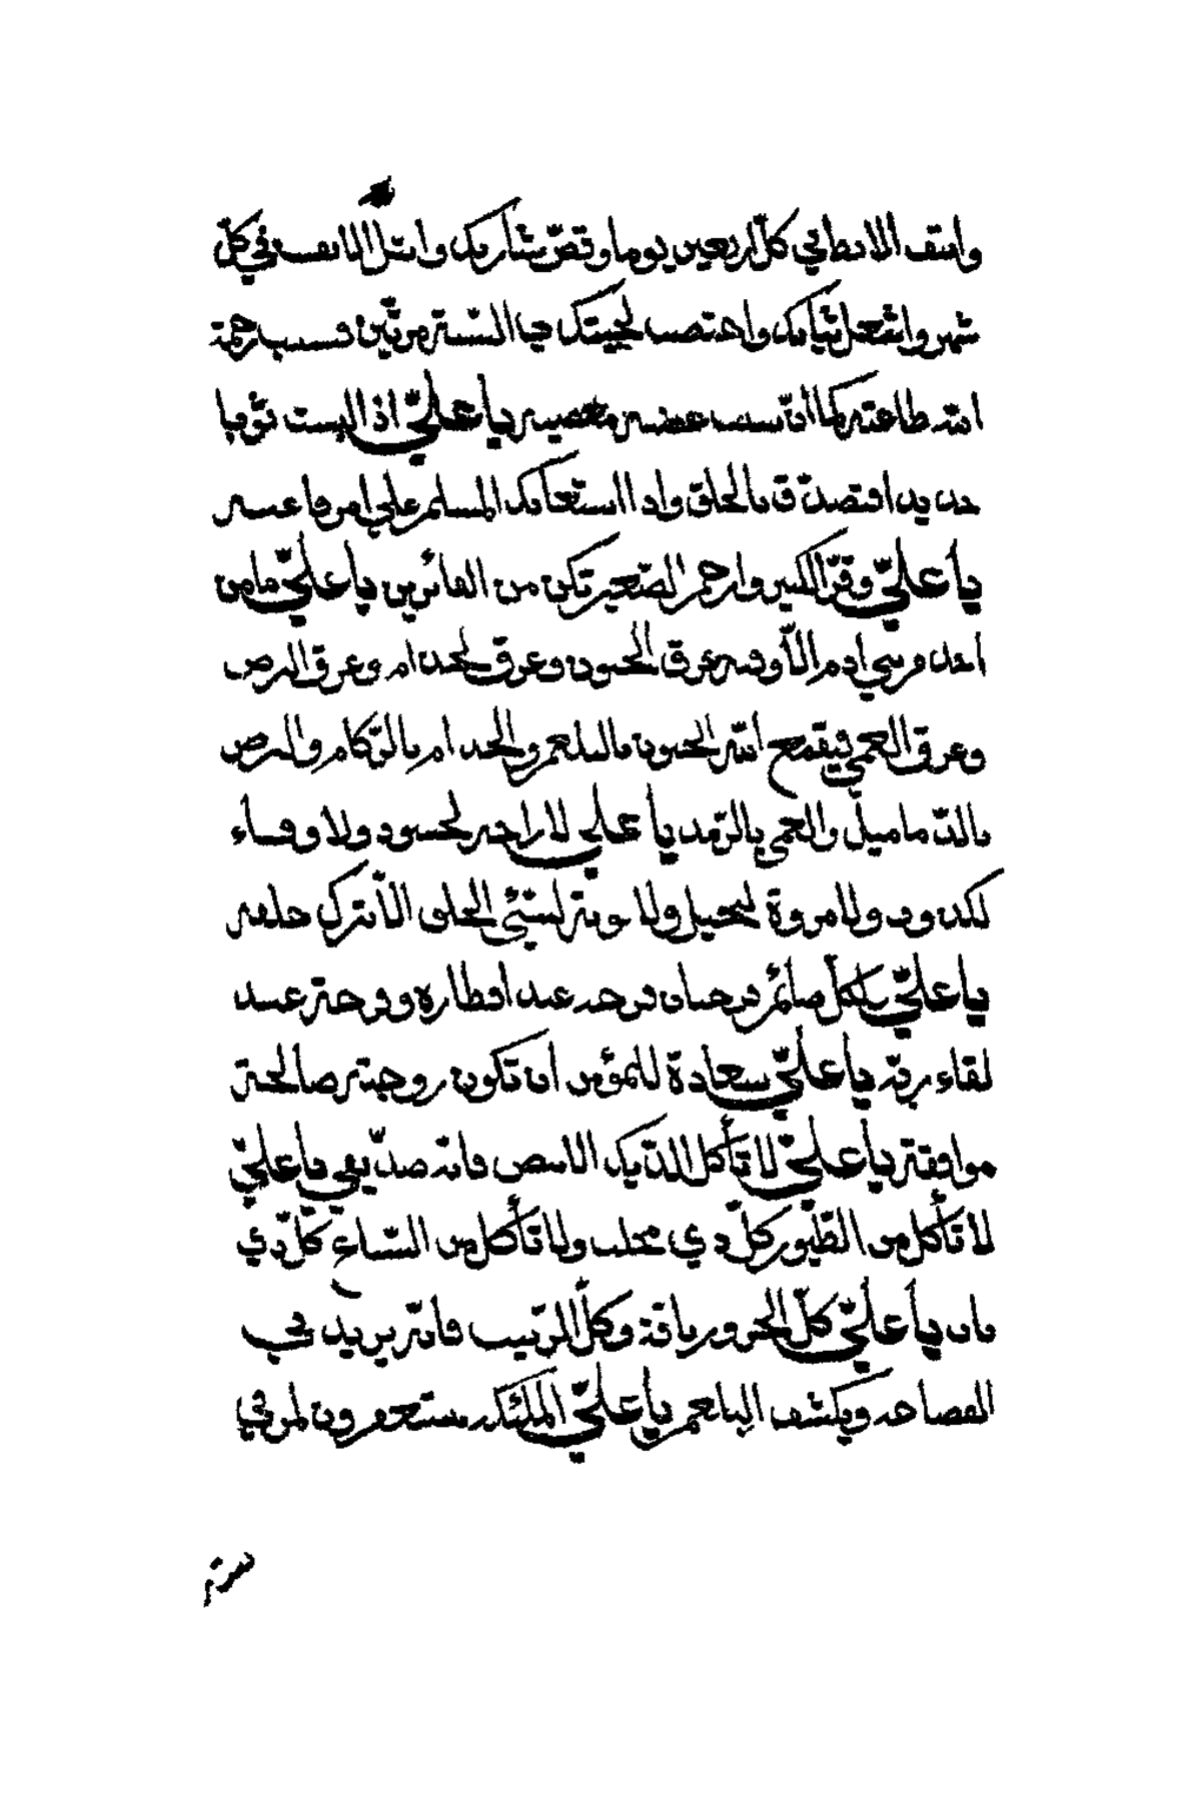 وانتف الابط في كل اربعين يوما وقصّ شاربك وانتك الانفسه في كلّ
شهر واشعل ثيابك واختصب لحيتك فيا السّنة مرتين فسبب رحمة
الله طاعته كما انّ سبب غضبه معصيته يا عليّ اذا لبست ثوبا
جديدا فتصدّق بالخلق واذا استعانك المسلم على امر فاعنه
يا عليّ وقّر الكبير وارحم الصّغير تكن من الفائزين يا عليّ ما من
احد من بني ادم الّا وفيه عرق الجنون وعرق الجذام وعرق البرص
وعرق العمى فيقمع الله الجنون بالبلغم والجذام بالزّكام والبرص
بالدّماميل والعمى بالرّمد يا علي لا راحة لحسود ولا وفاء
لكذوب ولا مروة لبخيل ولا توبة لسيّئ الخلق الّا بترك خلقه
يا عليّ لكلّ صائم فرحتان فرحة عند افطاره وفرحة عند
لقاء ربّه يا عليّ سعادة للمؤمن ان تكون زوجته صالحة
موافقة يا عليّ لا تأكل الدّيك الابيض فانه صدّيقي يا عليّ
لا تأكل من الطّيور كلّ ذي مخلب ولا تأكل من السّباع كلّ ذي
ناب يا عليّ كلّ الجزور باقة وكلّ الزّبيب فانه يزيد في
الفصاحة ويكشف البلغم يا عليّ الملئكة يستغفرون لمن في